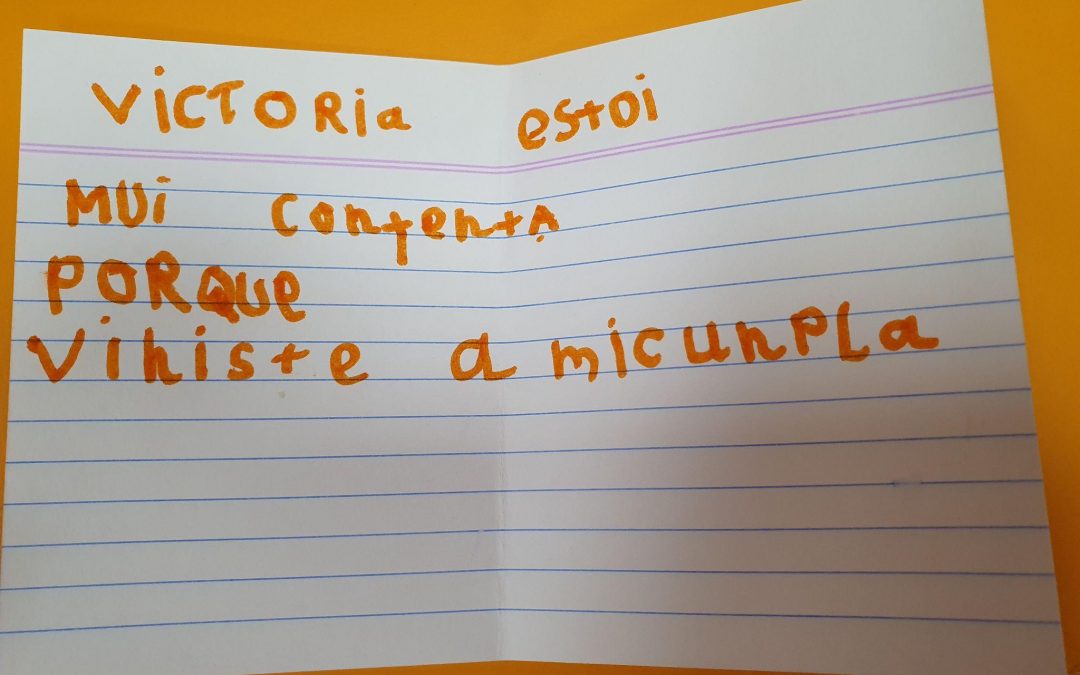 VICTORia estoi
MUi contentA
PORQUe
Viniste a micunPLa